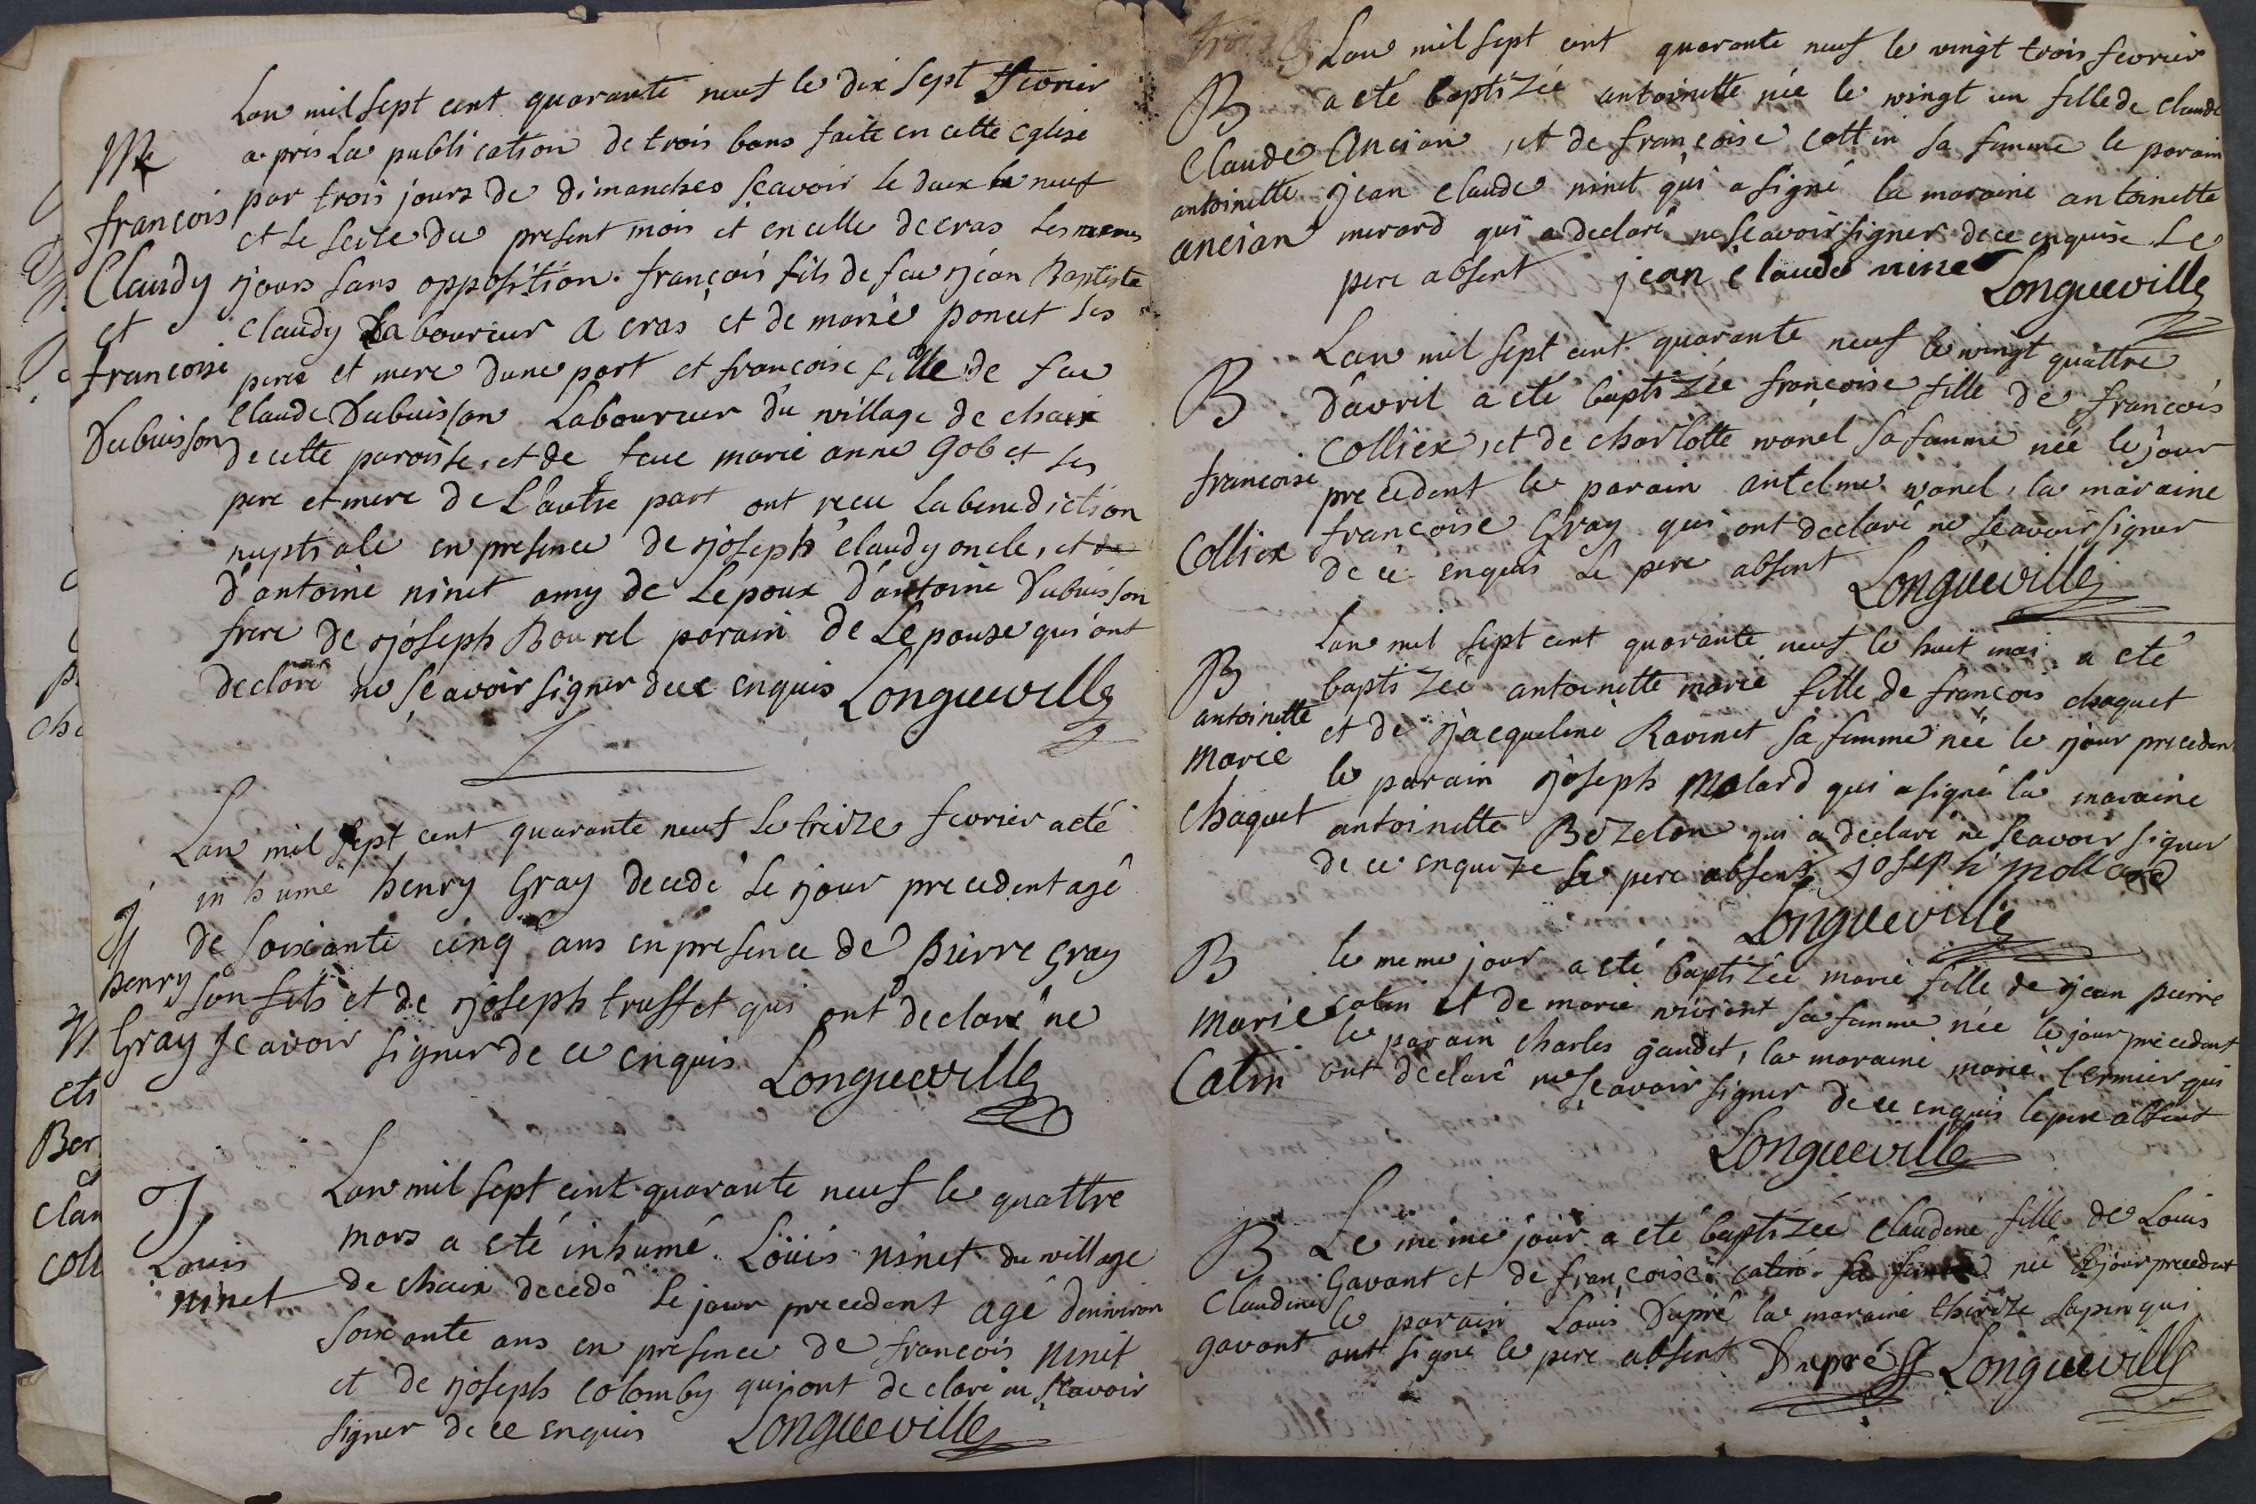 Lan mil sept cent quarante neuf le dix sept fevrier
a pris La publication de trois bans faite en cette eglise
par trois jours de dimanches scavoir le deux le neuf
et le seile du present mois et en celle de cras les memes
jours sans opposition. françois fils de feu jean Baptiste
claudy Laboureur a cras et de marie poncet ses
pere et mere dune part et francoise fille de feu
claude Dubuisson Laboureur du village de chaix
de cette paroisse, et de feue marie anne gobet ses
pere et mere de L'autre part ont receu La benediction
nuptiale en presence de joseph claudy oncle, et de
d'antoine ninet amy de Lepoux d'antoine Dubuisson
frere de joseph Bourel parain de Lepouse qui ont
declaré ne scavoir signer de ce enquis Longueville
M
françois
Claudy
et
francoise
Dubuisson
Lan mil sept cent quarante neuf le treize fevrier a eté
inhumé henry Gray decedé le jour precedent agé
de soixante cinq ans en presence de pierre gray
son fils et de joseph truffet qui ont declaré ne
scavoir signer de ce enquis Longueville
henry
Gray
Lan mil sept cent quarante neuf le quattre
mars a eté inhumé. Loüis ninet du village
de chaix decedé le jour precedent agé denviron
soixante ans en presence de francois ninet
et de joseph colomby qui ont declaré ne scavoir
signer de ce enquis Longueville
J
Louis
ninet
Lan mil sept cent quarante neuf le vingt trois fevrier
a eté baptizée antoinette née le vingt un fille de claude
Ancian, et de francoise cottin sa femme le parain
jean claude ninet qui a signé la maraine antoinette
merard qui a declaré ne scavoir signer de ce enquise Le
pere absent jean claude nine Longueville
B
Claude
antoinette
ancian
Lan mil sept cent quarante neuf le vingt quattre
d'avril a eté baptizée françoise fille de francois
Colliex, et de charlotte wanel sa femme née le jour
precedent le parain antelme wanel, la maraine
francoise Gray qui ont declaré ne scavoir signer
de ce enquis Le pere absent Longueville
B
francoise
Colliex
Lan mil sept cent quarante neuf le huit mai a eté
baptizée antoinette marie fille de francois chaquet
et de jacqueline Ravinet sa femme née le jour preceden
le parain joseph Molard qui a signé la maraine
antoinette Bozelon qui a declaré ne scavoir signer
de ce enquize Le pere absent joseph mollard
Longueville
B
antoinette
Marie
Chaquet
le meme jour a eté baptizée marie fille de jean pierre
catin et de marie vivient sa femme née le jour precedent
le parain charles gaudet, la maraine marie termier qui
ont declaré ne scavoir signer de ce enquis le pere absent
Longueville
B
Marie
Catin
Le meme jour a eté baptizée claudine fille de Louis
Gavant et de françoise catin sa femme née le jour precedent
le parain Louis Dupré la maraine therize sapin qui
ont signé le pere absent Dupré Longueville
B
Claudine
gavant